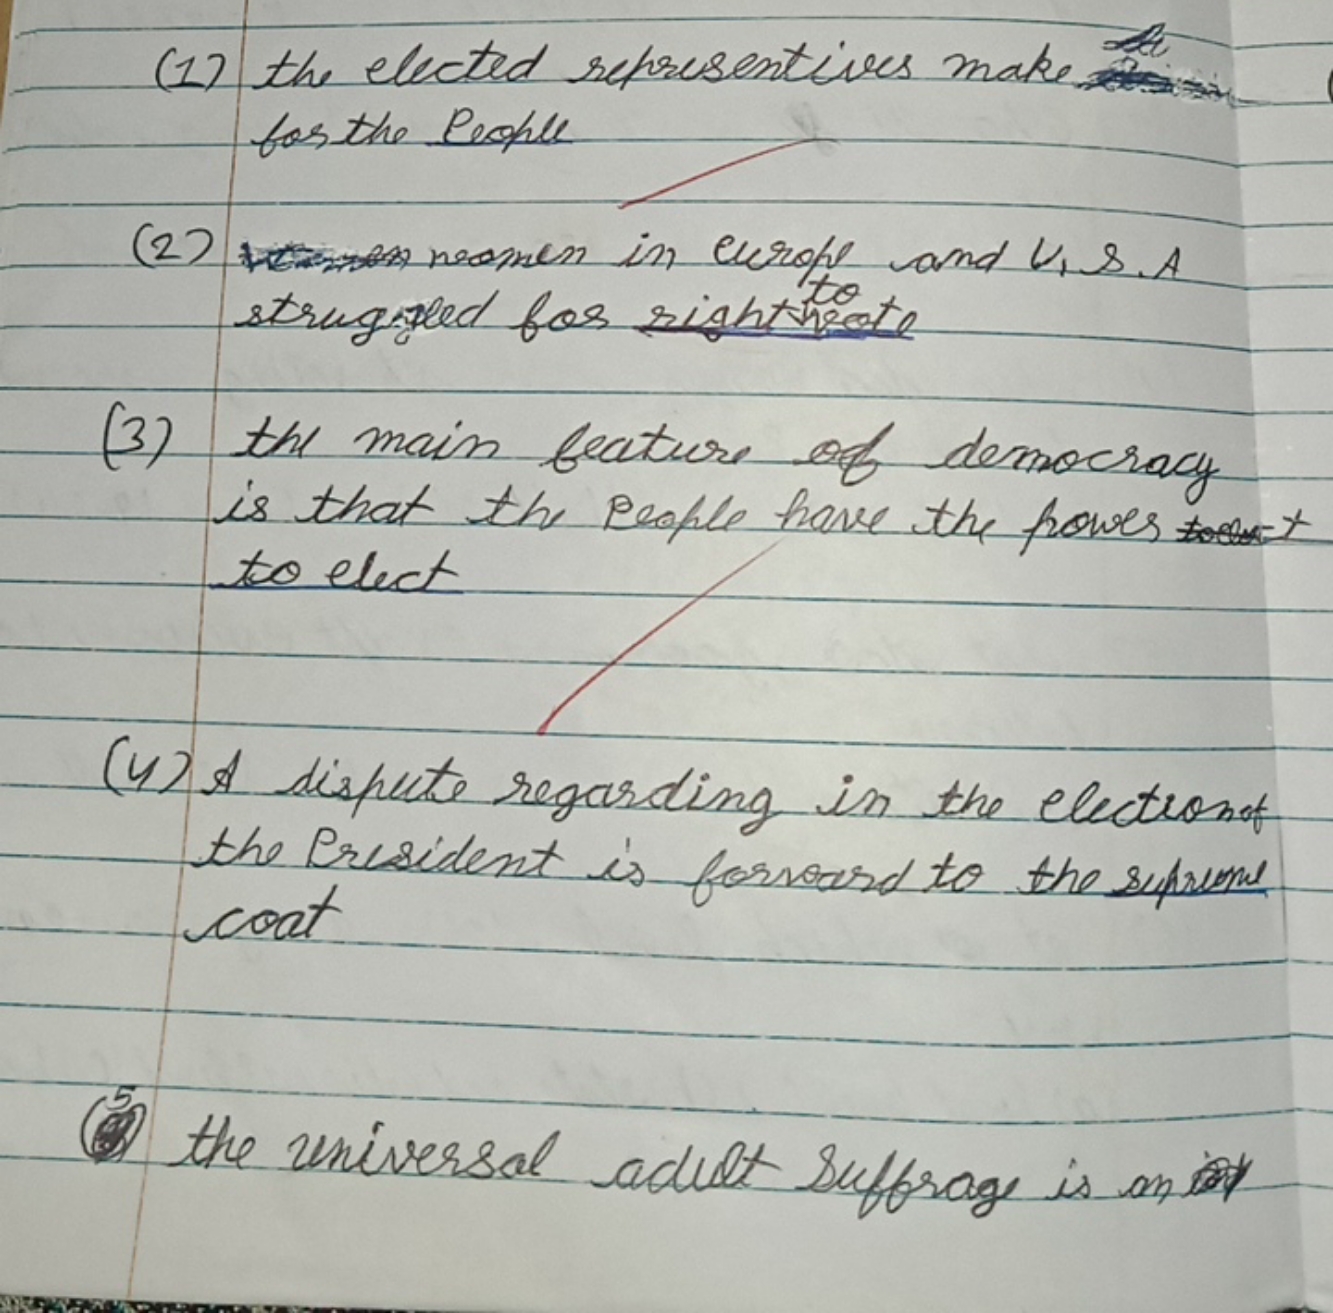 (1) the elected representives make
for the People
(2) women in europe and U.S.A
struggled for right to vote
(3) the main feature of democracy
is that the People have the power
to elect
(4) A dispute regarding in the election of
the President is forward to the supreme
coat
(5) the universal adult Suffrage is an